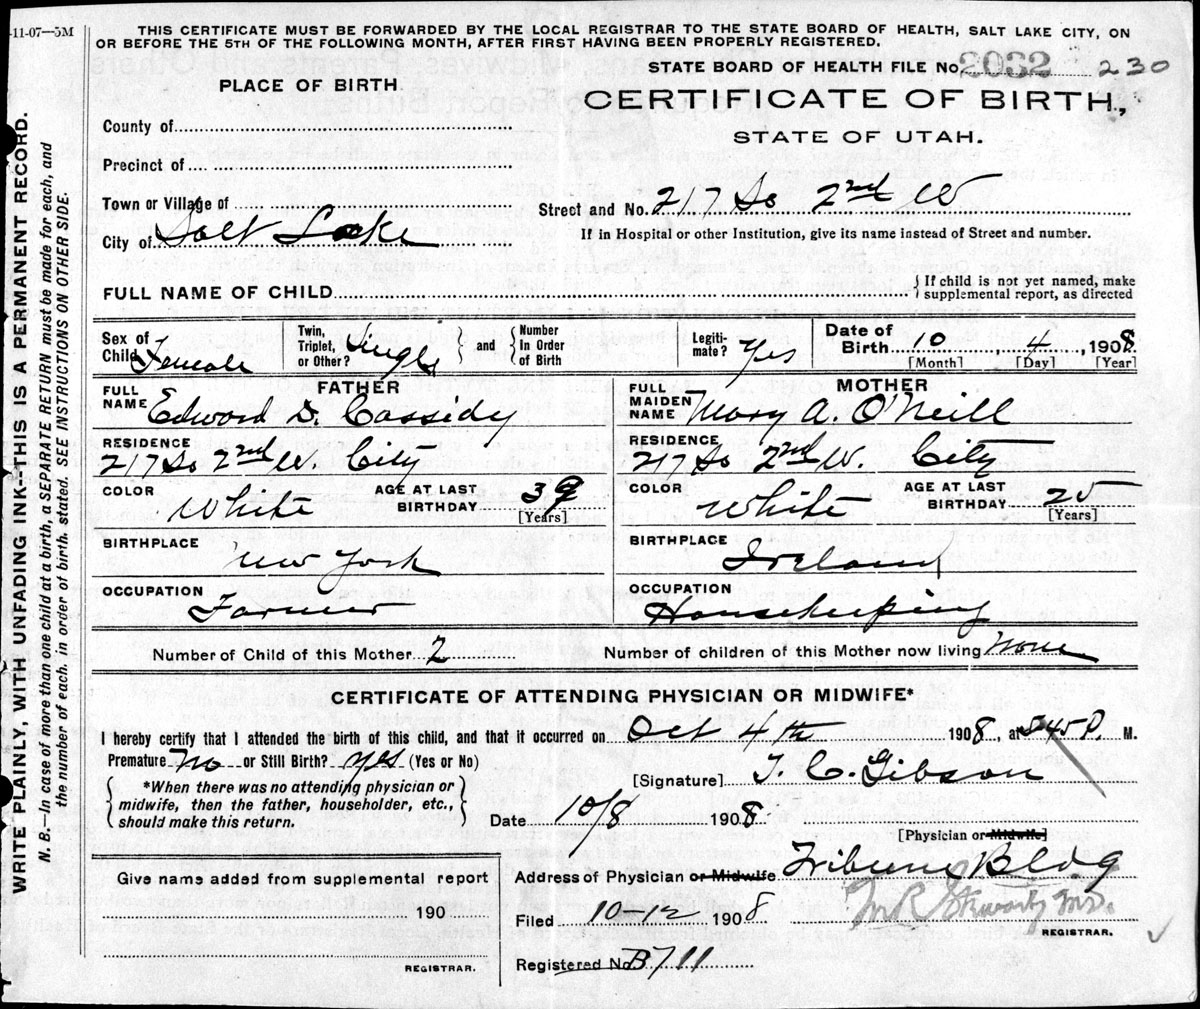 -11-07—5M
THIS CERTIFICATE MUST BE FORWARDED BY THE LOCAL REGISTRAR TO THE STATE BOARD OF HEALTH, SALT LAKE CITY, ON
OR BEFORE THE 5TH OF THE FOLLOWING MONTH, AFTER FIRST HAVING BEEN PROPERLY REGISTERED.
STATE BOARD OF HEALTH FILE No. 2032 230
PLACE OF BIRTH.
CERTIFICATE OF BIRTH,
STATE OF UTAH.
County of
Precinct of
Town or Village of
City of Salt Lake
Street and No. 217 So 2nd W
If in Hospital or other Institution, give its name instead of Street and number.
FULL NAME OF CHILD
If child is not yet named, make
supplemental report, as directed
Sex of Child Female
Twin, Triplet, or Other? Single and Number In Order of Birth
Legiti-mate? Yes
Date of Birth 10 4 1908
[Month] [Day] [Year]
FATHER
FULL NAME Edward D. Cassidy
RESIDENCE 217 So 2nd W. City
COLOR White AGE AT LAST BIRTHDAY 39 [Years]
BIRTHPLACE New York
OCCUPATION Farmer
MOTHER
FULL MAIDEN NAME Mary A. O'Neill
RESIDENCE 217 So 2nd W. City
COLOR White AGE AT LAST BIRTHDAY 25 [Years]
BIRTHPLACE Ireland
OCCUPATION Housekeeping
Number of Child of this Mother 2 Number of children of this Mother now living None
CERTIFICATE OF ATTENDING PHYSICIAN OR MIDWIFE*
I hereby certify that I attended the birth of this child, and that it occurred on Oct 4th 1908, at 845 P. M.
Premature No or Still Birth? Yes (Yes or No)
*When there was no attending physician or
midwife, then the father, householder, etc.,
should make this return.
[Signature] T. C. Gibson
Date 10/8 1908
[Physician or Midwife]
Give name added from supplemental report
190
REGISTRAR.
Address of Physician or Midwife Tribune Bldg
Filed 10-12 1908
REGISTRAR.
Registered No. B711
WRITE PLAINLY, WITH UNFADING INK—THIS IS A PERMANENT RECORD.
N. B.—In case of more than one child at a birth, a SEPARATE RETURN must be made for each, and
the number of each, in order of birth, stated. SEE INSTRUCTIONS ON OTHER SIDE.